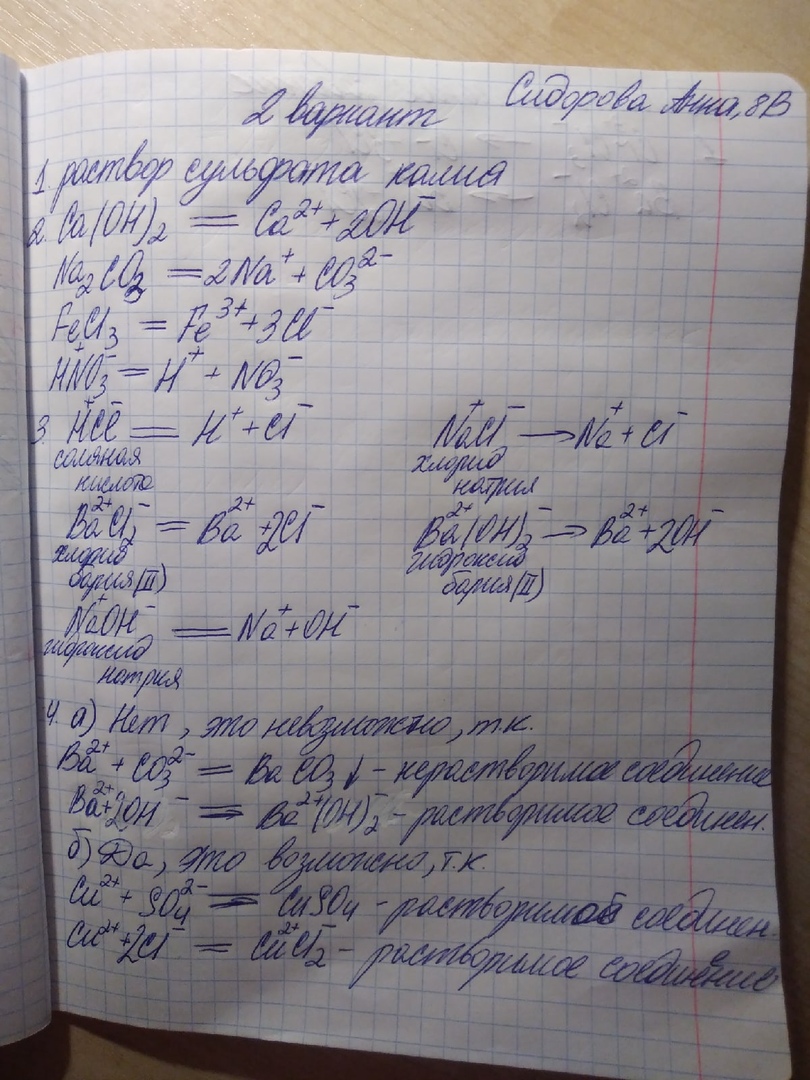 2 вариант Сидорова Анна, 8В
1. раствор сульфата калия
2. Ca(OH)₂ = Ca²⁺ + 2OH⁻
Na₂CO₃ = 2Na⁺ + CO₃²⁻
FeCl₃ = Fe³⁺ + 3Cl⁻
H⁺NO₃⁻ = H⁺ + NO₃⁻
3. H⁺Cl⁻ = H⁺ + Cl⁻ Na⁺Cl⁻ → Na⁺ + Cl⁻
соляная кислота хлорид натрия
Ba²⁺Cl₂⁻ = Ba²⁺ + 2Cl⁻ Ba²⁺(OH)₂⁻ → Ba²⁺ + 2OH⁻
хлорид бария(II) гидроксид бария(II)
Na⁺OH⁻ = Na⁺ + OH⁻
гидроксид
натрия
4. а) Нет, это невозможно, т.к.
Ba²⁺ + CO₃²⁻ = BaCO₃↓ - нерастворимое соединение
Ba²⁺ + 2OH⁻ = Ba²⁺(OH)₂⁻ - растворимое соединен.
б) Да, это возможно, т.к.
Cu²⁺ + SO₄²⁻ = CuSO₄ - растворимое соединен.
Cu²⁺ + 2Cl⁻ = Cu²⁺Cl₂⁻ - растворимое соединение